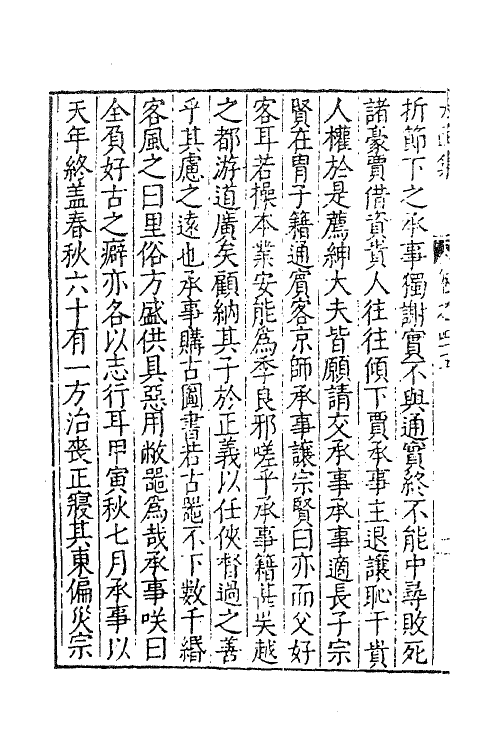 折節下之承事獨謝實不與通實終不能中尋敗死
諸豪賈借資貴人往往傾下賈承事主退讓恥干貴
人權於是薦紳大夫皆願請交承事承事適長子宗
賢在胄子籍通賓客京師承事讓宗賢曰亦而父好
客耳若操本業安能為季良邪嗟乎承事籍其吳越
之都游道廣矣顧納其子於正義以任俠督過之善
乎其慮之遠也承事購古圖書若古器不下數千緡
客風之曰里俗方盛供具惡用敝噐為哉承事咲曰
全負好古之癖亦各以志行耳甲寅秋七月承事以
天年終盖春秋六十有一方治喪正寢其東偏災宗